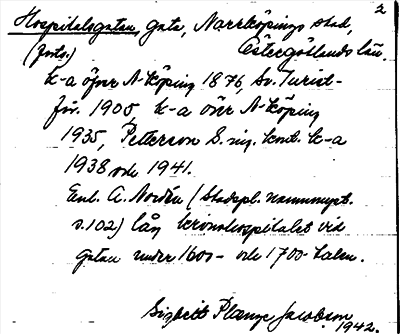 2
Hospitalsgatan, gata, Norrköpings stad,
(forts.) Östergötlands län.
k-a öfver N-köping 1876, Sv. Turist-
för. 1908, k-a över N-köping
1935, Petterson S. ing. kont. k-a
1938 och 1941.
Enl. A. Nordén (Stadspl. namnuppt.
s. 102) låg kronohospitalet vid
gatan under 1600- och 1700-talen.
Sigbrit Plange Jacobson
1942.